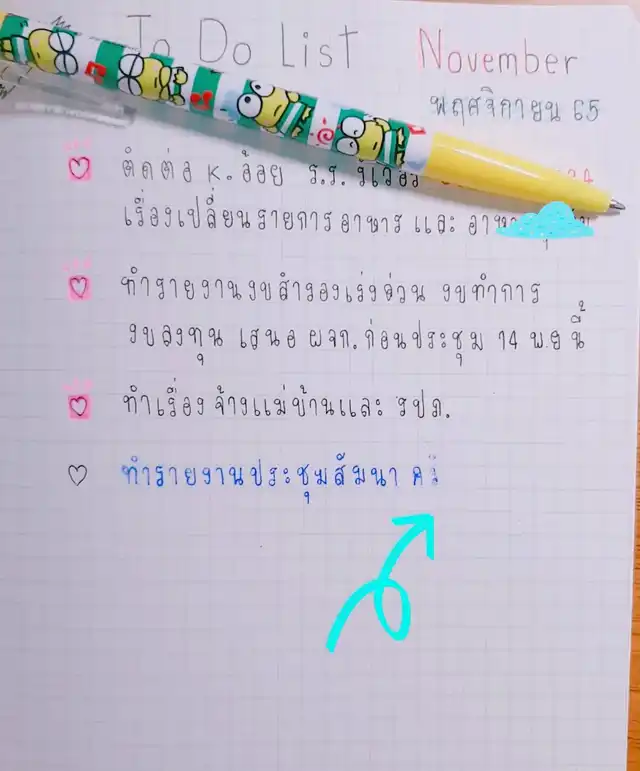 To Do List November
พฤศจิกายน 65
ติดต่อ K. อ้อย ร.ร.
เรื่องเปลี่ยนรายการอาหาร และ
ทำรายงานงบสำรองเร่งด่วน งบทำการ
งบลงทุน เสนอ ผจก. ก่อนประชุม 14 พ.ย นี้
ทำเรื่องจ้างแม่บ้านและ รปภ.
ทำรายงานประชุมสัมนา